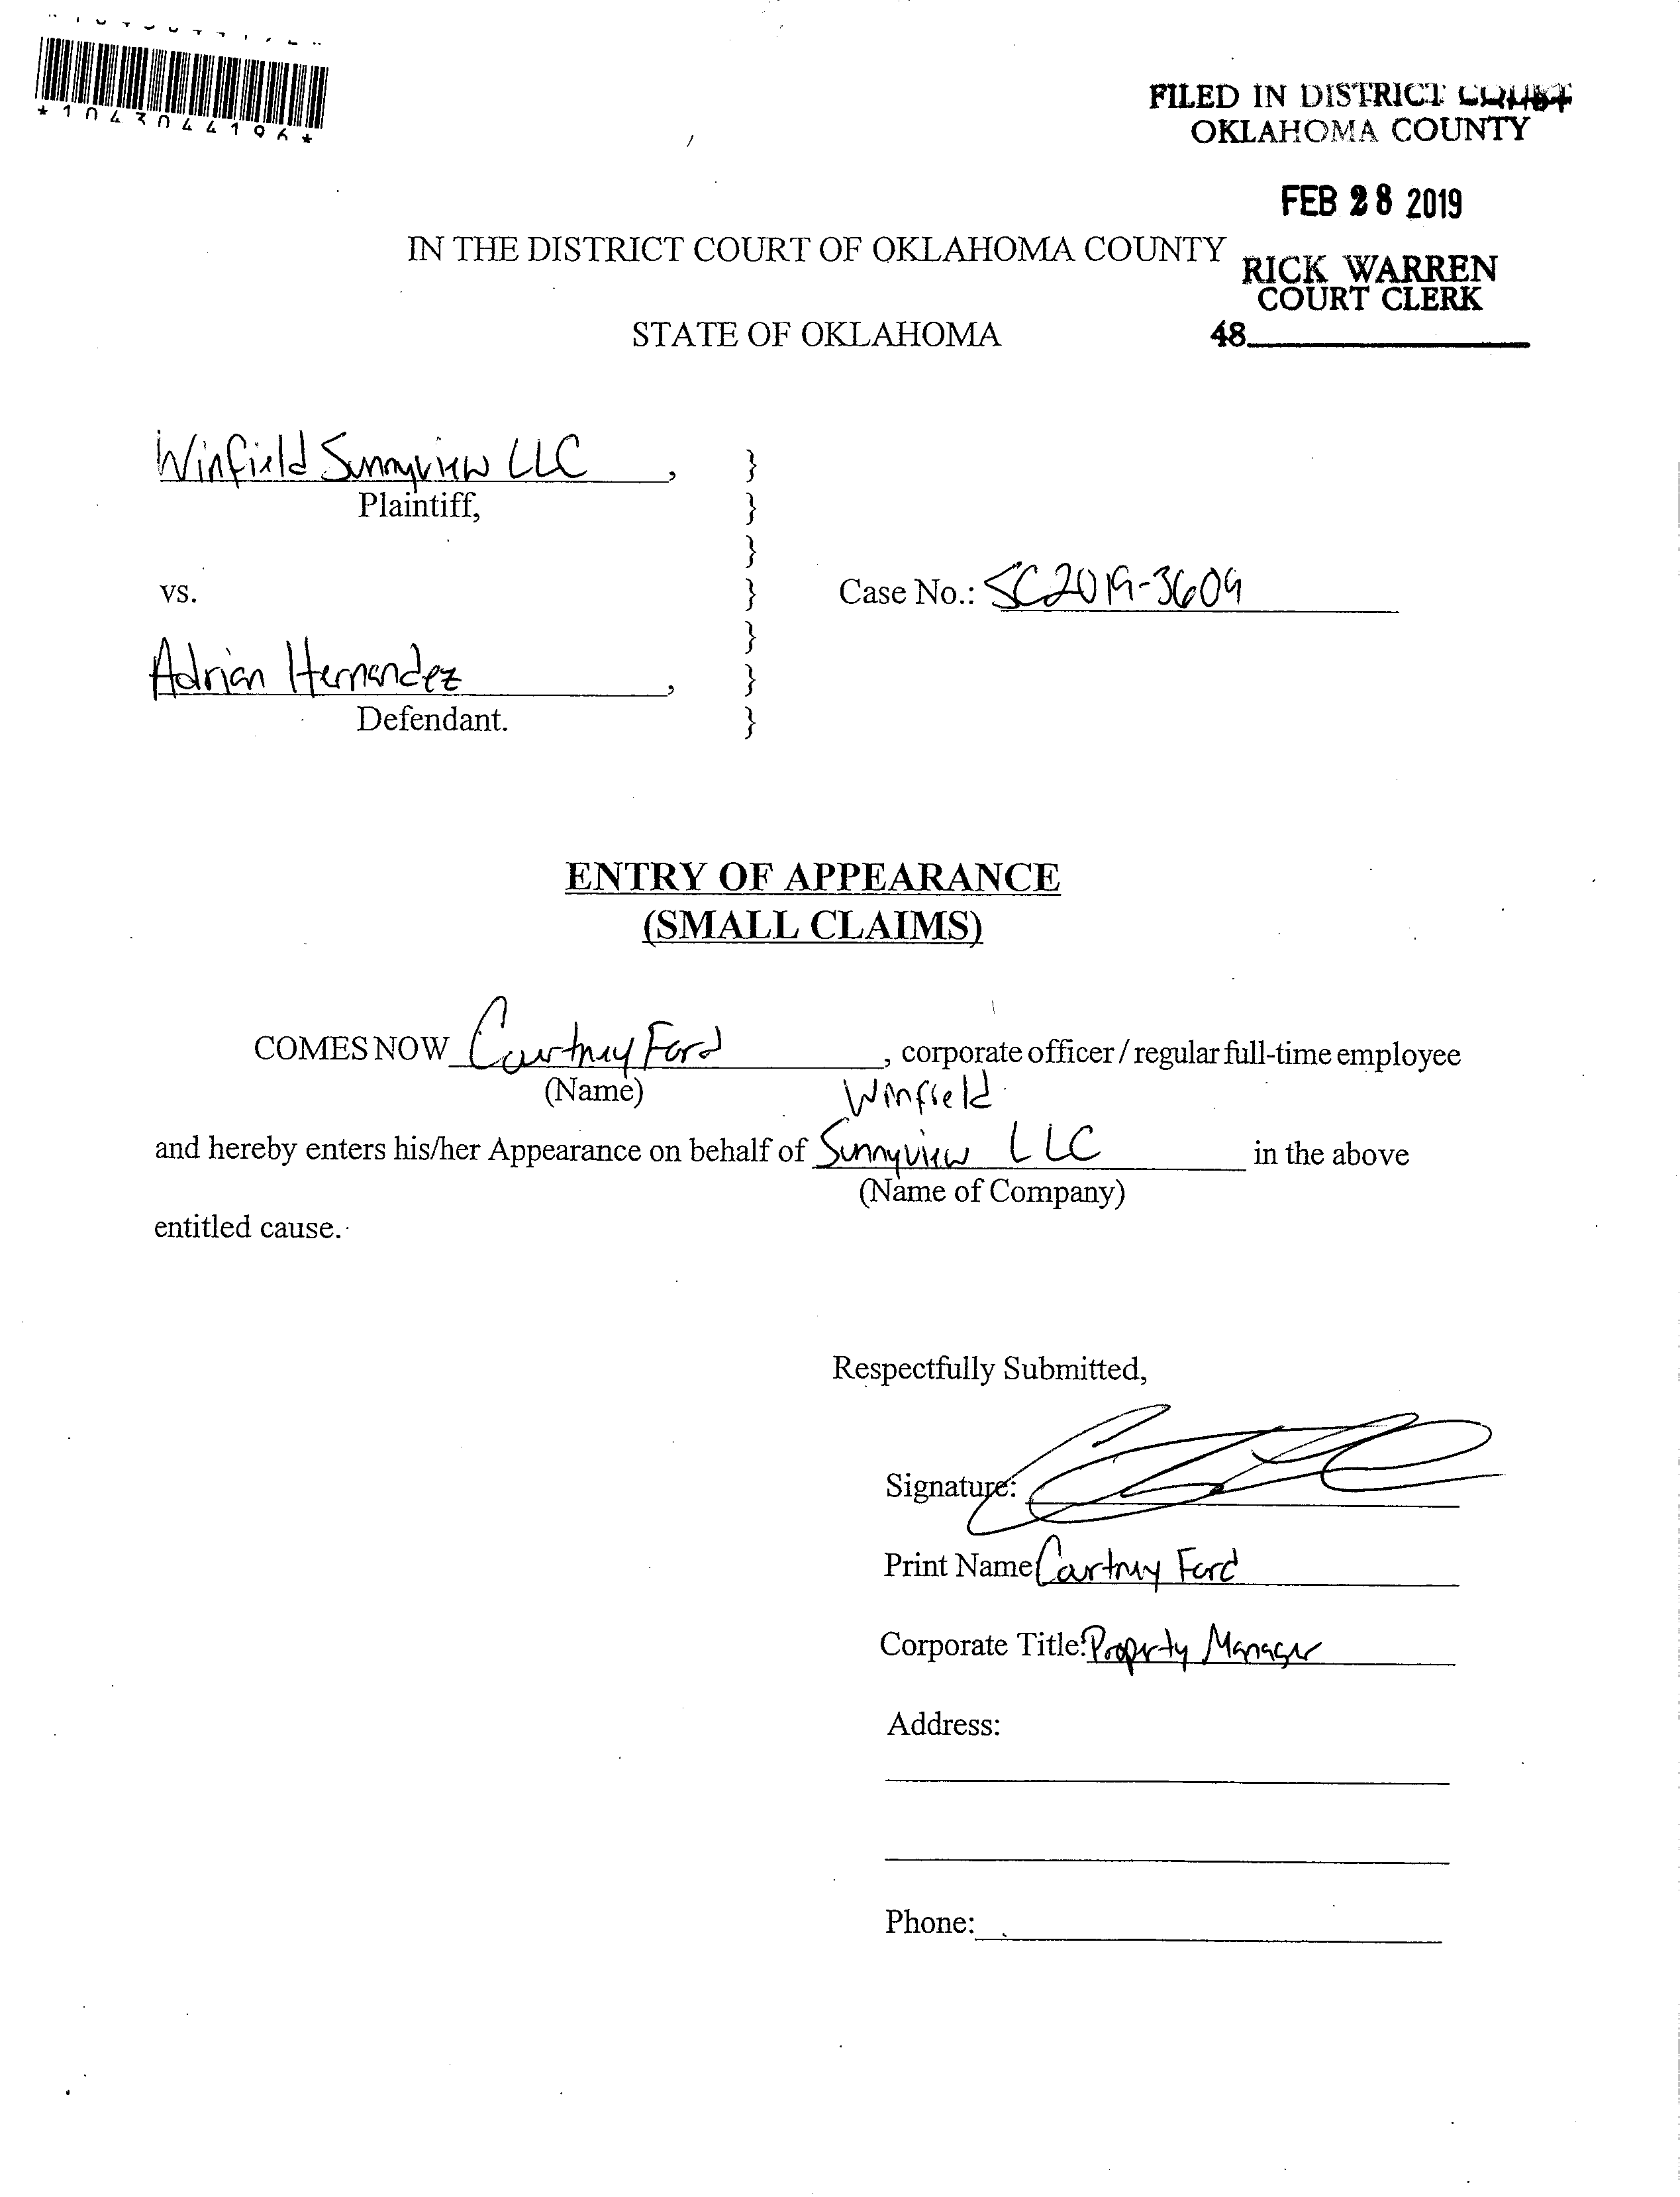 *1043044196*
FILED IN DISTRICT COURT
OKLAHOMA COUNTY
FEB 28 2019
IN THE DISTRICT COURT OF OKLAHOMA COUNTY
RICK WARREN
COURT CLERK
STATE OF OKLAHOMA
48
Winfield Sunnyview LLC,
Plaintiff,
vs.
Case No.: SC2019-3609
Adrian Hernandez,
Defendant.
}
}
}
}
}
}
}
ENTRY OF APPEARANCE
(SMALL CLAIMS)
COMES NOW Courtney Ford, corporate officer / regular full-time employee
(Name)
Winfield
and hereby enters his/her Appearance on behalf of Sunnyview LLC in the above
(Name of Company)
entitled cause.
Respectfully Submitted,
Signature:
Print Name: Courtney Ford
Corporate Title: Property Manager
Address:
Phone: